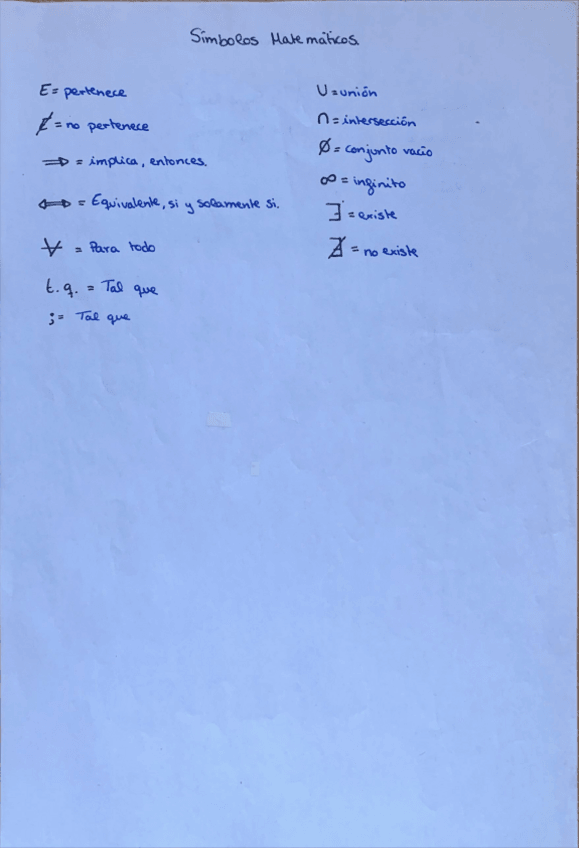 Símbolos Matemáticos
E = pertenece
∉ = no pertenece
⇒ = implica, entonces.
⇔ = Equivalente, si y solamente si.
∀ = Para todo
t.q. = Tal que
; = Tal que
U = unión
∩ = intersección
Ø = conjunto vacio
∞ = infinito
∃ = existe
∄ = no existe